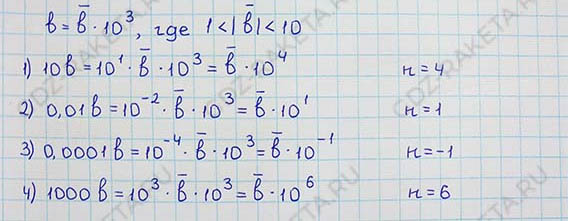 b = b̅ · 10³, где 1 < |b̅| < 10
1) 10b = 10¹ · b̅ · 10³ = b̅ · 10⁴ n = 4
2) 0,01b = 10⁻² · b̅ · 10³ = b̅ · 10¹ n = 1
3) 0,0001b = 10⁻⁴ · b̅ · 10³ = b̅ · 10⁻¹ n = -1
4) 1000b = 10³ · b̅ · 10³ = b̅ · 10⁶ n = 6